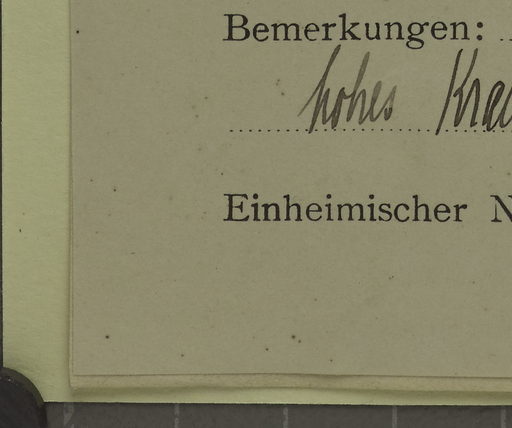 Bemerkungen:
hohes
Einheimischer N